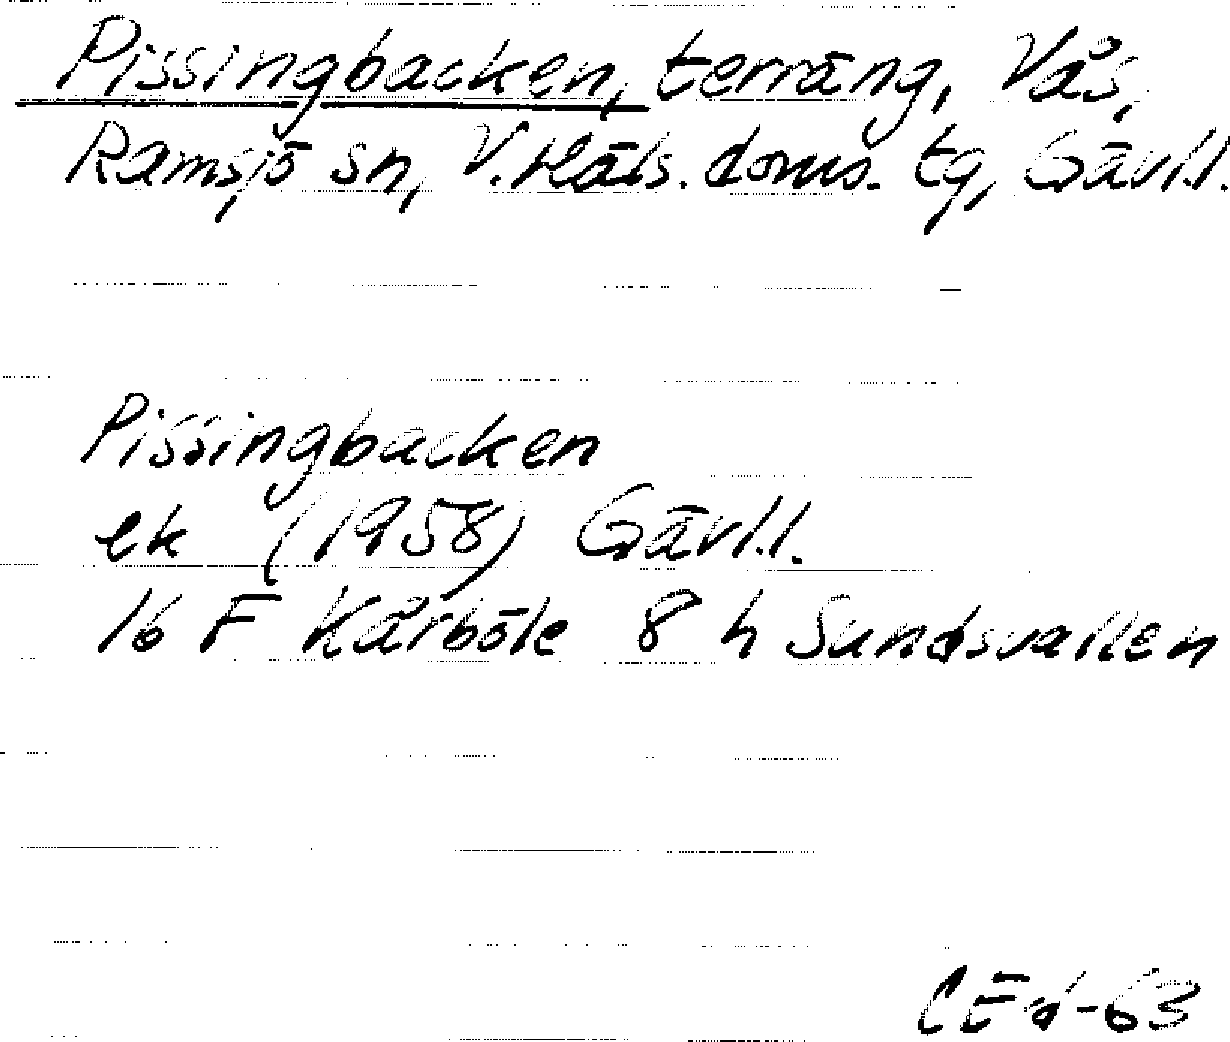 Pissingbacken, terräng, Vås,
Ramsjö sn, V. Häls. doms. tg, Gävl.l.
Pissingbacken
ek (1958) Gävl.l.
16 F Kårböle 8 h Sundsvallen
CEd-63